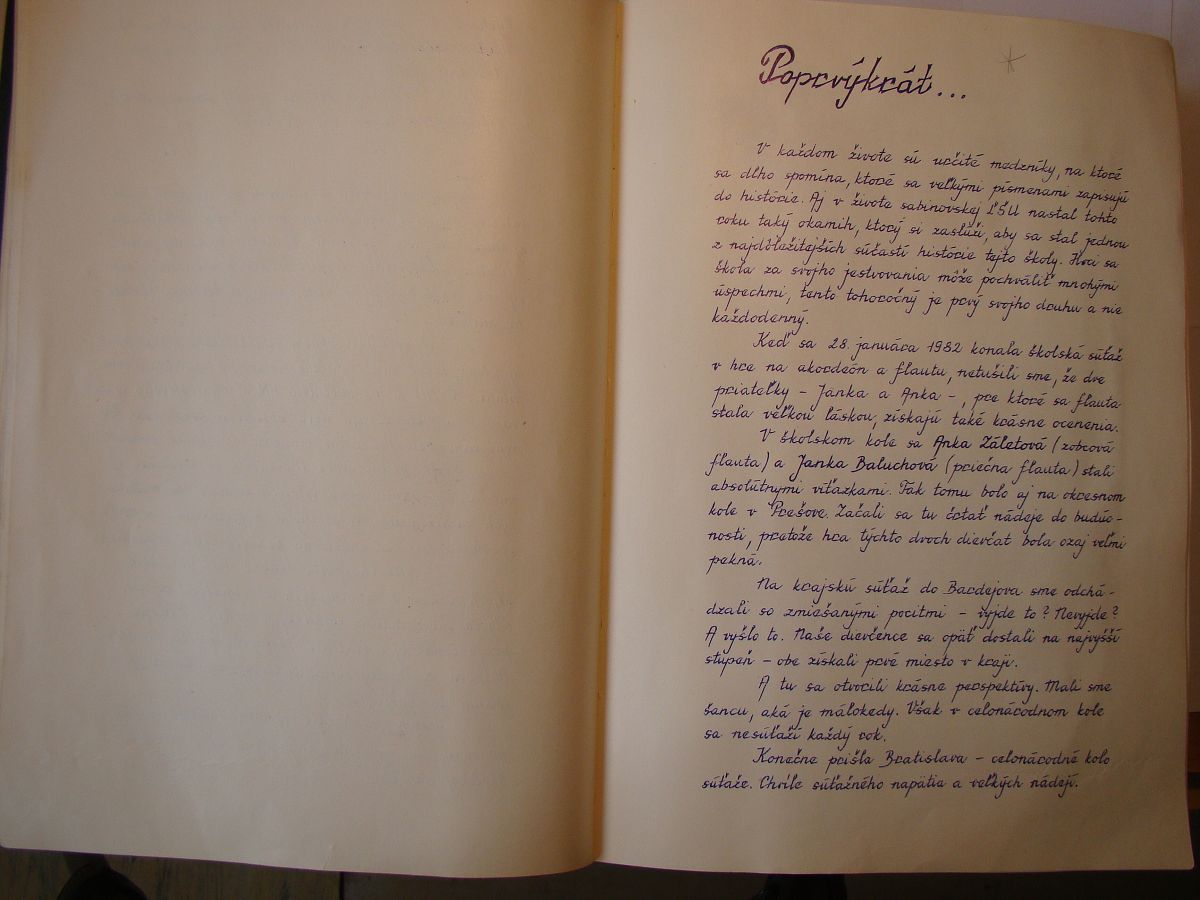 Poprvýkrát...
V každom živote sú určité medzníky, na ktoré
sa dlho spomína, ktoré sa veľkými písmenami zapisujú
do histórie. Aj v živote sabinovskej ĽŠU nastal tohto
roku taký okamih, ktorý si zaslúži, aby sa stal jednou
z najdôležitejších súčastí histórie tejto školy. Hoci sa
škola za svojho jestvovania môže pochváliť mnohými
úspechmi, tento tohoročný je prvý svojho druhu a nie
každodenný.
Keď sa 28. januára 1982 konala školská súťaž
v hre na akordeón a flautu, netušili sme, že dve
priateľky - Janka a Anka -, pre ktoré sa flauta
stala veľkou láskou, získajú také krásne ocenenia.
V školskom kole sa Anka Záletová (zobcová
flauta) a Janka Baluchová (priečna flauta) stali
absolútnymi víťazkami. Tak tomu bolo aj na okresnom
kole v Prešove. Začali sa tu črtať nádeje do budúc-
nosti, pretože hra týchto dvoch dievčat bola ozaj veľmi
pekná.
Na krajskú súťaž do Bardejova sme odchá-
dzali so zmiešanými pocitmi - vyjde to? Nevyjde?
A vyšlo to. Naše dievčence sa opäť dostali na najvyšší
stupeň - obe získali prvé miesto v kraji.
A tu sa otvorili krásne perspektívy. Mali sme
šancu, aká je málokedy. Však v celonárodnom kole
sa nesúťaží každý rok.
Konečne prišla Bratislava - celonárodné kolo
súťaže. Chvíle súťažného napätia a veľkých nádejí.